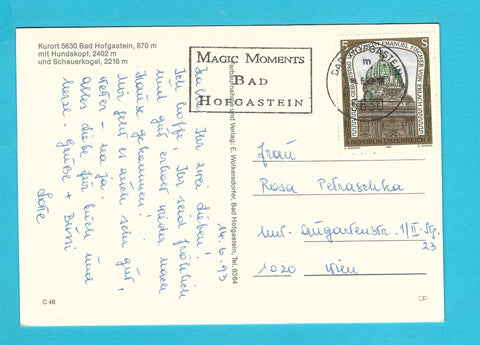 Kurort 5630 Bad Hofgastein, 870 m
mit Hundskopf, 2402 m
und Schauerkogel, 2216 m
MAGIC MOMENTS
BAD
HOFGASTEIN
REPUBLIK ÖSTERREICH
5
14.6.93
Hallo, Ihr zwei Lieben!
Ich hoffe, Ihr seid fröhlich
und gut erholt wieder nach
Hause gekommen!
Mir geht es auch sehr gut,
Wetter - na ja.
Alles Liebe für Euch und
herzl. Grüße + Bussi
Farbaufnahme und Verlag: E. Wolkersdorfer, Bad Hofgastein, Tel. 6364
C 46
Frau
Rosa Petraschka
Unt. Augartenstr. 1/II. Stg.
23
1020 Wien